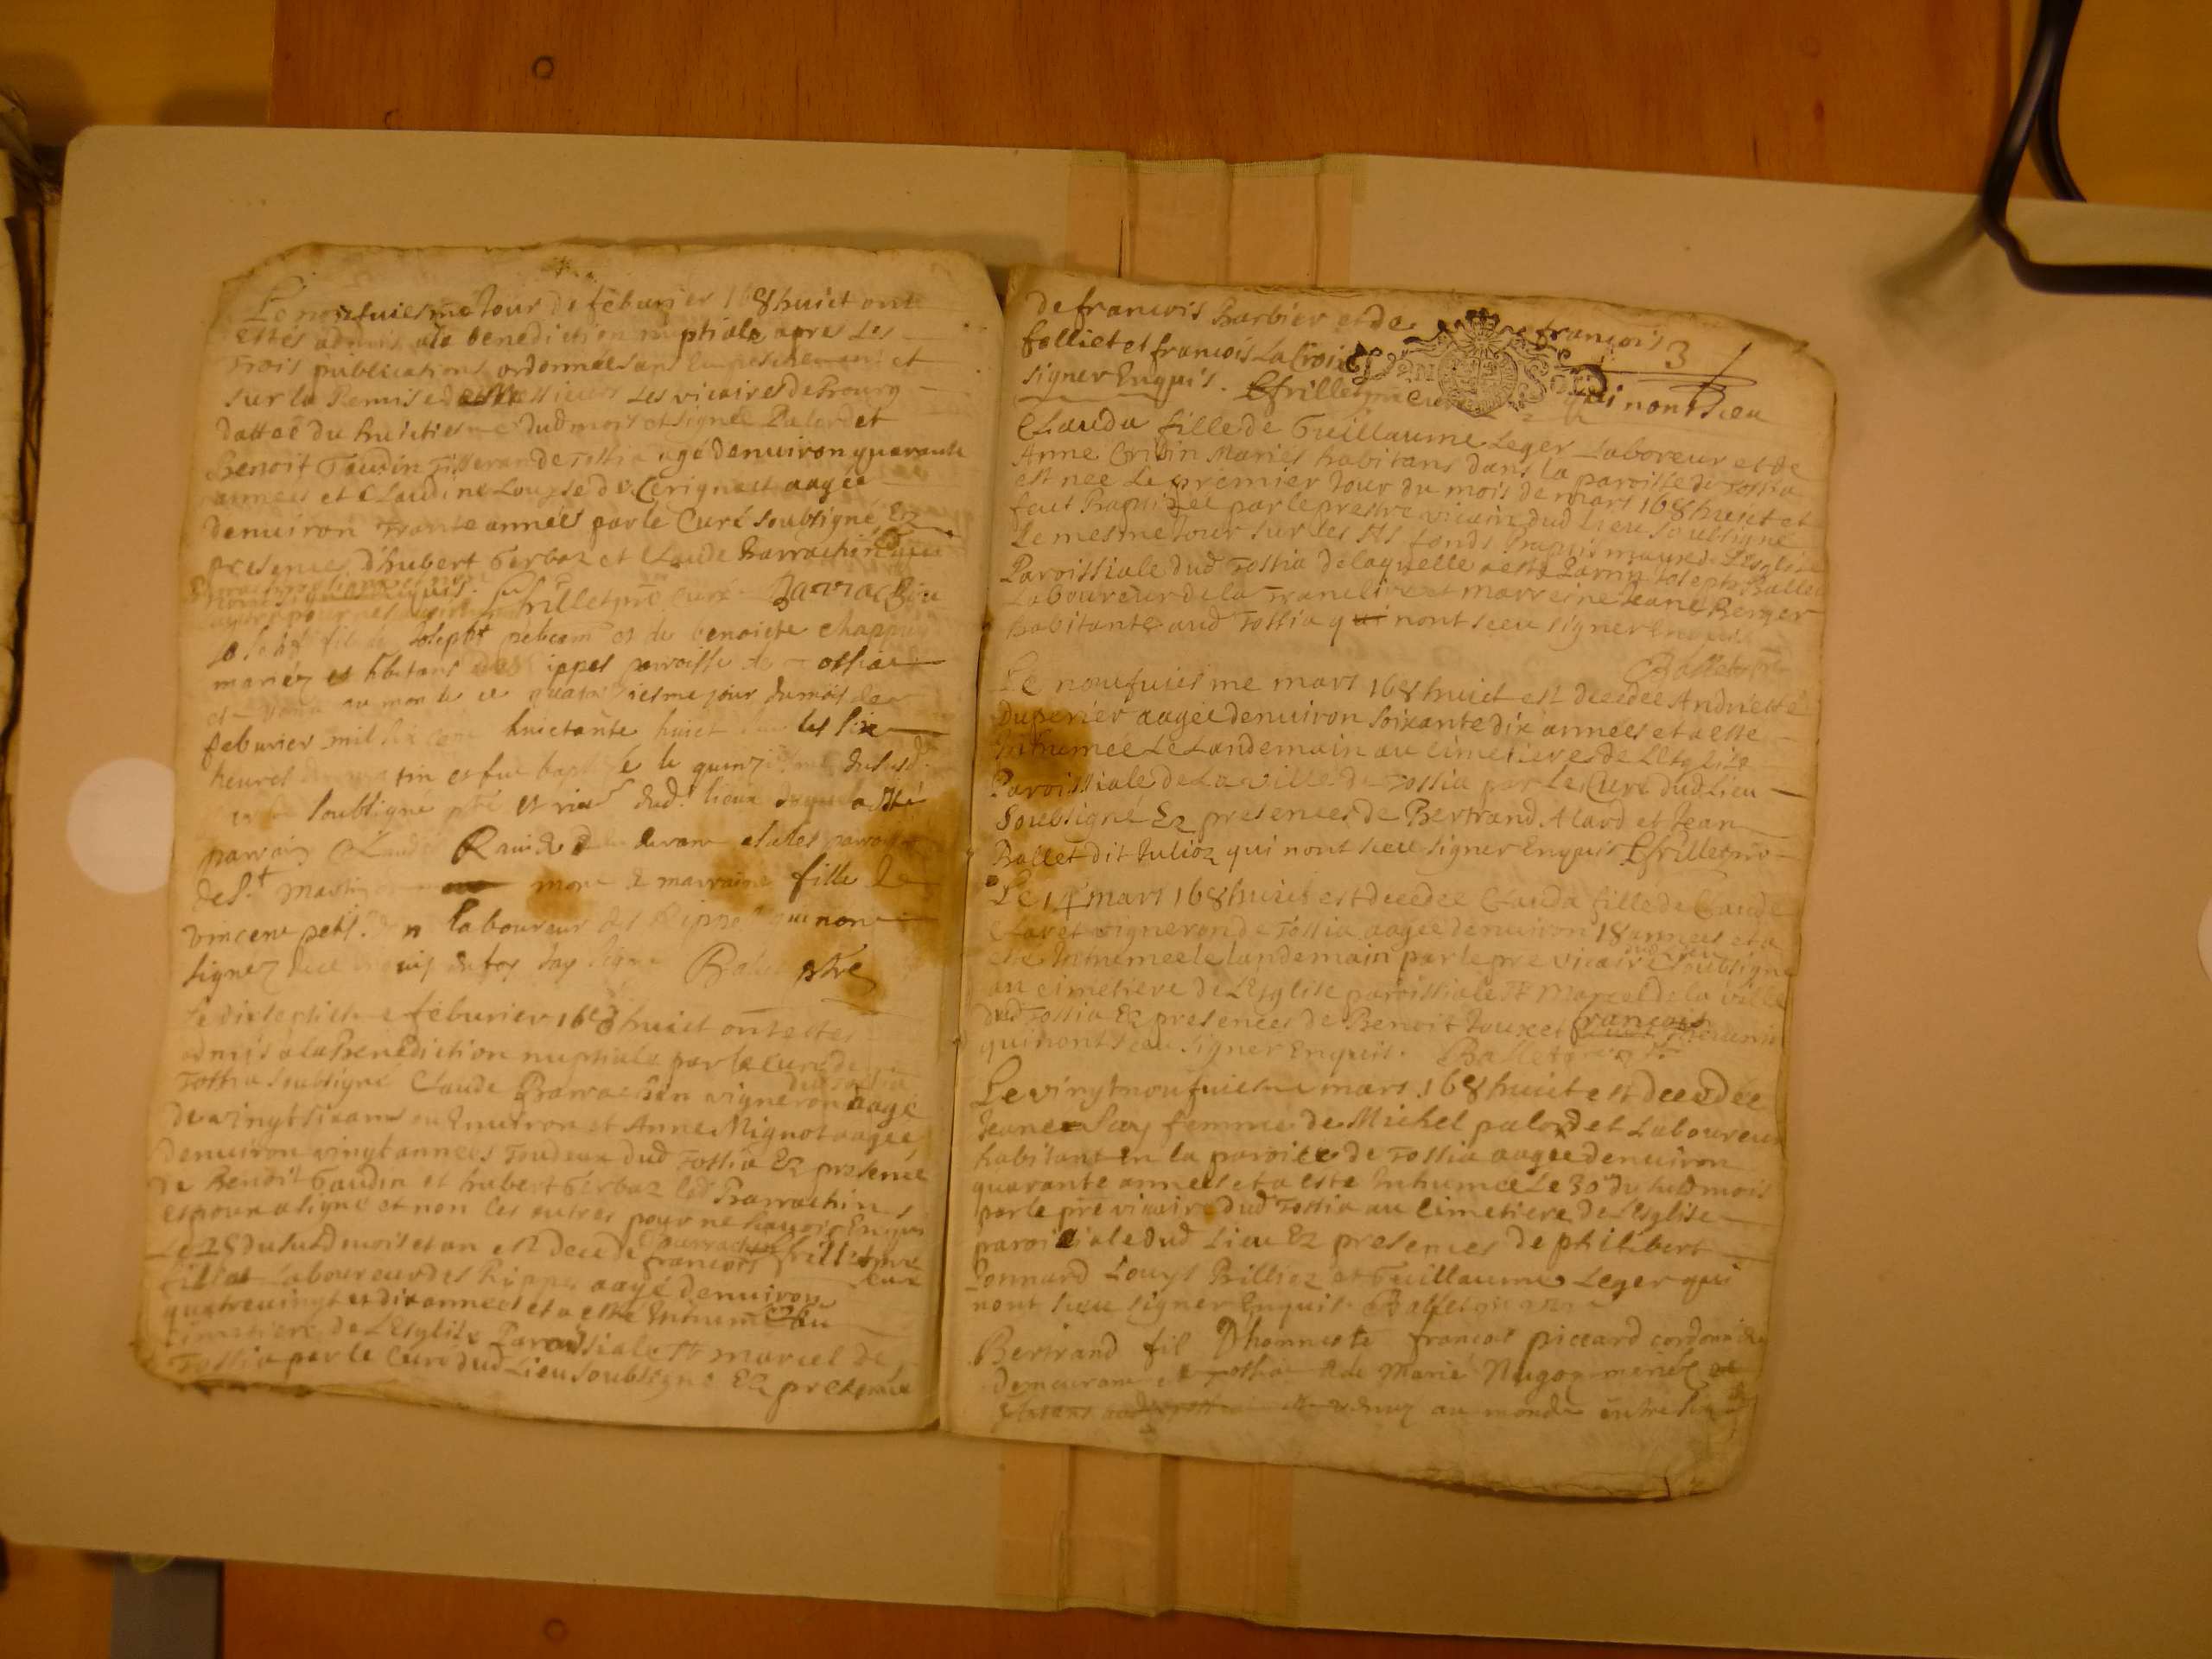 Le noufuiesme Jour de feburier 168huict ont
estés admis ala benediction nuptiale apres Les
Trois publications ordonnees sans Empeschement et
sur la Remise de Messieurs Les vicaires de Bourg
dattee du huictiesme dud mois et signée Palordet
Benoit Gaudin Tisserand de Tossia agé denuiron quarante
années et Claudine Louyse de Cerignat aagée
denuiron Trante années par le Curé soubsigné Ez
presences d'hubert Gerbaz et Claude Barrachin
Cfrillet pre curé Barrachin
Joseph fil de Joseph pelicam et de benoiste chappuy
mariéz et hbitans des ippes parroisse de Tossia
et venu au monde le quatorsiesme jour du mois de
feburier mil six cent huictante huict sur les six
heures du matin et fut baptizé le quinziesme dususd.
soubsigné ptre et vic dud. lieux duquel a esté
parrain Claude
de St Martin mont & marraine fille de
vincent petit laboureur des Rippes qui non
signez de ce enquis en foy Jay signé Ballet ptre
Le dixseptiesme feburier 168huict ont estes
admis a la Benediction nuptiale par le curé de
Tossia soubsigné Claude Barrachin vigneron dud Tossia aagé
de vingt six ans ou Enuiron et Anne Mignot aagée
denuiron vingt années Toudeux dud Tossia Ez presence
de Benoit Gaudin et hubert Gerbaz led Barrachin
espoux a signé et non les autres pour ne scauoir Enquis
Barrachin Cfrillet pre cure
Le 28 du susd mois et an est decedé francois
fillot Laboureur des Rippes aagé denuiron
quatreuingt et dix années et a esté Enhumé au
cimetiere de LEsglise Paroissiale St marcel de
Tossia par le Curé dud Lieu soubsigné Ez presence
de francois Barbier et de francois 3
folliet et francois La Croix qui nont sceu
signer Enquis. Cfrillet pre curé
Clauda fille de Guillaume Leger Laboreur et de
Anne Cribin Mariés habitans dans la paroisse de Tossia
est nee Le premier Jour du mois de mars 168huict et
faut Baptizée par le prestre vicaire dud Lieu soubsigné
Le mesme Jour sur les Sts fonds Baptismaux de LEsglise
Paroissiale dud Tossia de laquelle a esté Parrin Joseph Ballet
Laboureur de la Tranclire et marreine Jeane Berger
habitante aud Tossia qui nont sceu signer Enquis
Ballet ptre
Le noufuiesme mars 168huict est decedee Andriette
duperier aagée denuiron soixante dix années et a este
Inhumée Le Landemain au cimetiere de LEsglise
Paroissiale de La ville de Tossia par le Curé dud Lieu
Soubsigné Ez presences de Bertrand Alard et Jean
Ballet dit Julioz qui nont sceu signer Enquis Cfrillet pre
Le 14 mars 168huict est decedee Clauda fille de Claude
Claret vigneron de Tossia aagée denuiron 18 années et a
esté Inhumée le landemain par le pre vicaire dud lieu soubsigné
au cimetiere de LEsglise paroissiale St Marcel de la ville
dud Tossia Ez presences de Benoit Joux et francois
qui nont sceu signer Enquis. Ballet ptre
Le vingtnoufuiesme mars 168huict est decedee
Jeane Say femme de Michel palordet Laboureur
habitant En la paroice de Tossia aagée denuiron
quarante années et a este Enhumée Le 30 du susd mois
par le pre vicaire dud Tossia au Cimetiere de LEsglise
paroissiale dud Lieu Ez presences de philibert
Ponnard Louys Billioz et Guillaume Leger qui
nont sceu signer Enquis. Ballet ptre
Bertrand fil Dhonneste francois piccard cordonnier
demeurant a Tossia & de Marie Nugoz mariéz et
hbitans aud Tossia est venuz au monde entre